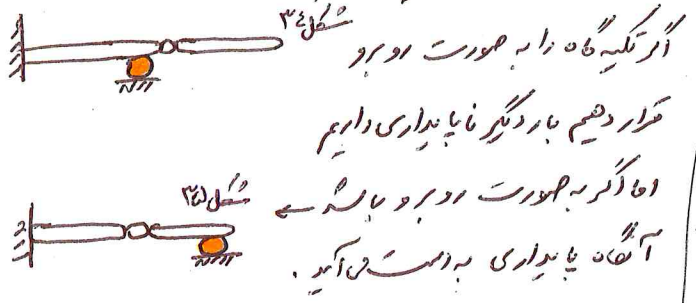 شکل ۳۴
اگر تکیه گاه را به صورت روبرو
قرار دهیم بار دیگر ناپایداری داریم
شکل ۳۵
اما اگر به صورت روبرو باشد ←
آنگاه پایداری به دست می آید.